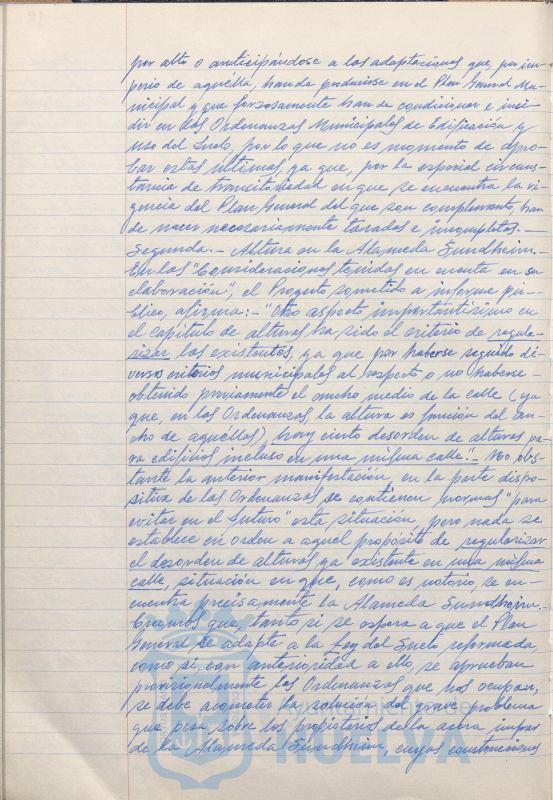 por alto o anticipándose a las adaptaciones que, por im-
perio de aquélla, han de producirse en el Plan General Mu-
nicipal y que forzosamente han de condicionar e inci-
dir en las Ordenanzas Municipales de Edificación y
uso del Suelo, por lo que no es momento de apro-
bar estas últimas, ya que, por la especial circuns-
tancia de transitoriedad en que se encuentra la vi-
gencia del Plan General del que son complemento, han
de nacer necesariamente taradas e incompletas.—
Segunda.- Altura en la Alameda Sundheim.-
En las "Consideraciones tenidas en cuenta en su
elaboración", el Proyecto sometido a informe pú-
blico, afirma:- "Otro aspecto importantísimo en
el capítulo de alturas ha sido el criterio de regula-
rizar las existentes, ya que por haberse seguido di-
versos criterios municipales al respecto o no haberse-
obtenido previamente el ancho medio de la calle (ya
que, en las Ordenanzas, la altura es función del an-
cho de aquéllas), hay cierto desorden de alturas pa-
ra edificios incluso en una misma calle".- No obs-
tante la anterior manifestación, en la parte dispo-
sitiva de las Ordenanzas se contienen normas "para
evitar en el futuro" esta situación, pero nada se
establece en orden a aquel propósito de regularizar
el desorden de alturas ya existente en una misma
calle, situación en que, como es notorio, se en-
cuentra precisamente la Alameda Sundheim.-
Creemos que, tanto si se espera a que el Plan
General se adapte a la Ley del Suelo reformada,
como si, con anterioridad a ello, se aprueban
provisionalmente las Ordenanzas que nos ocupan,
se debe acometer la solución del grave problema
que pesa sobre los propietarios de la acera impar
de la Alameda Sundheim, cuyas construcciones
HUELVA